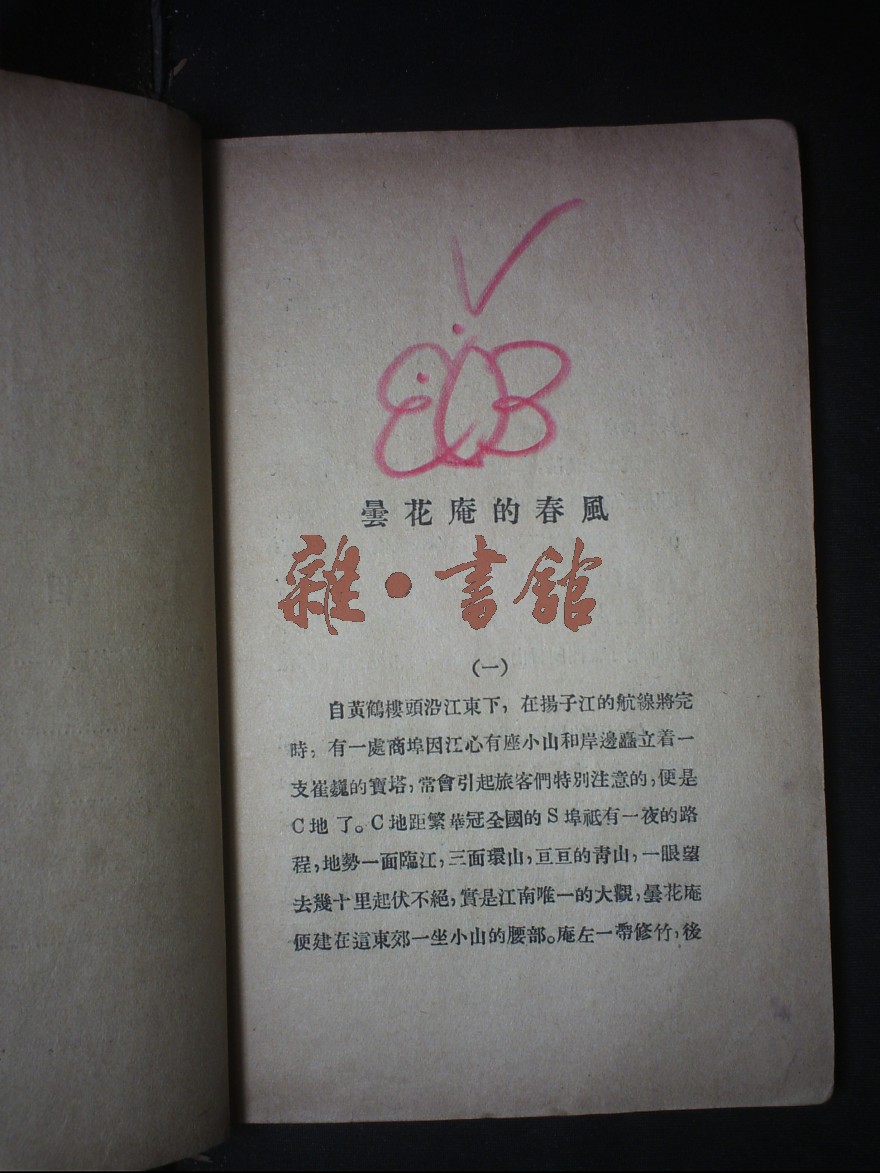 曇花庵的春風
雜·書館
(一)
自黃鶴樓頭沿江東下，在揚子江的航線將完
時，有一處商埠因江心有座小山和岸邊矗立着一
支崔巍的寶塔，常會引起旅客們特別注意的，便是
C地了。C地距繁華冠全國的S埠祗有一夜的路
程，地勢一面臨江，三面環山，亘亘的靑山，一眼望
去幾十里起伏不絕，實是江南唯一的大觀，曇花庵
便建在這東郊一坐小山的腰部。庵左一帶修竹，後